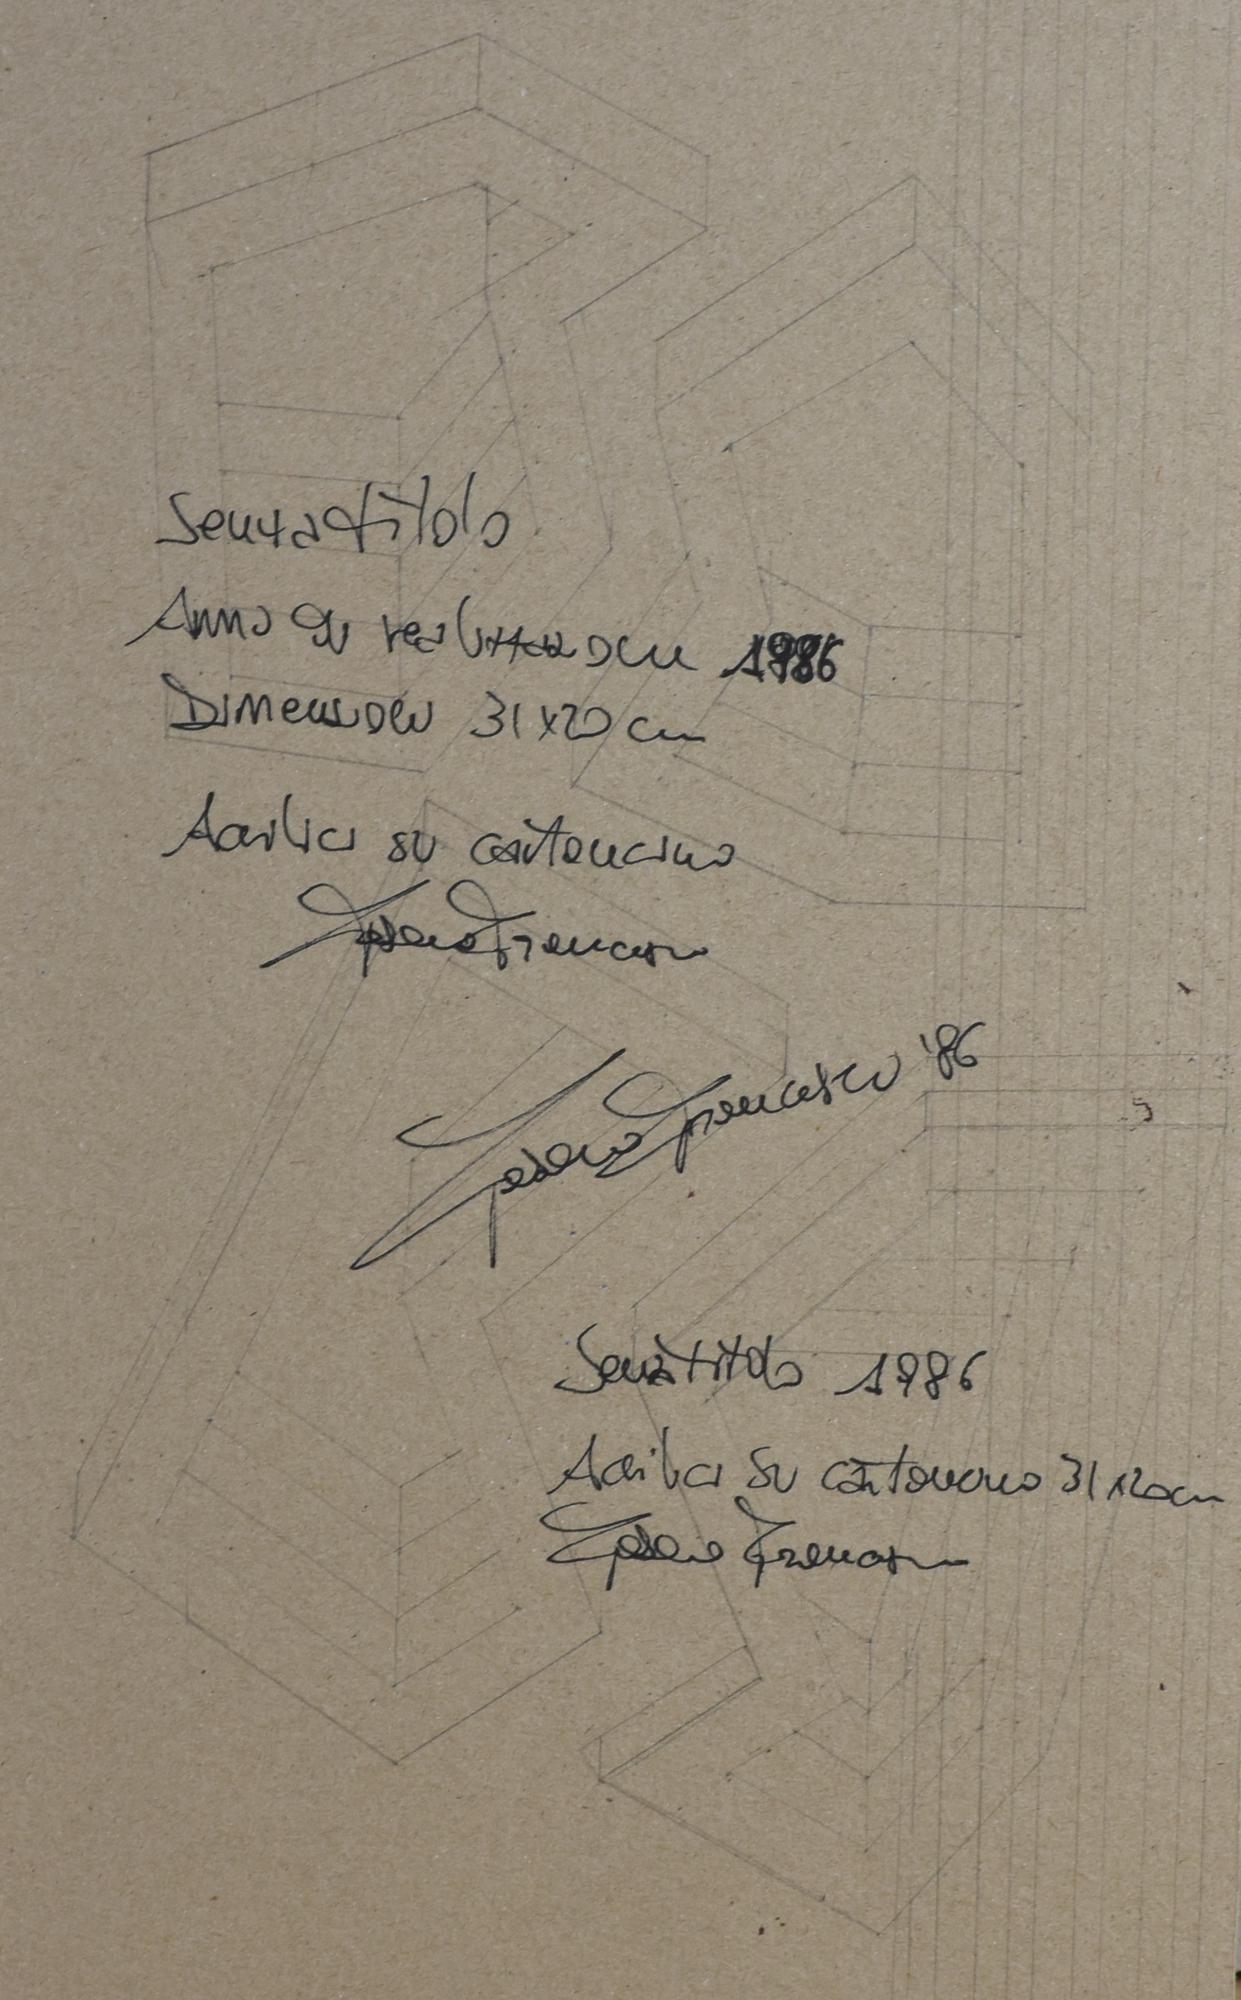 Senza titolo
Anno di realizzazione 1986
Dimensioni 31x20 cm
Acrilici su cartoncino
Francesco
Francesco '86
Senza titolo 1986
Acrilici su cartoncino 31x20cm
Francesco